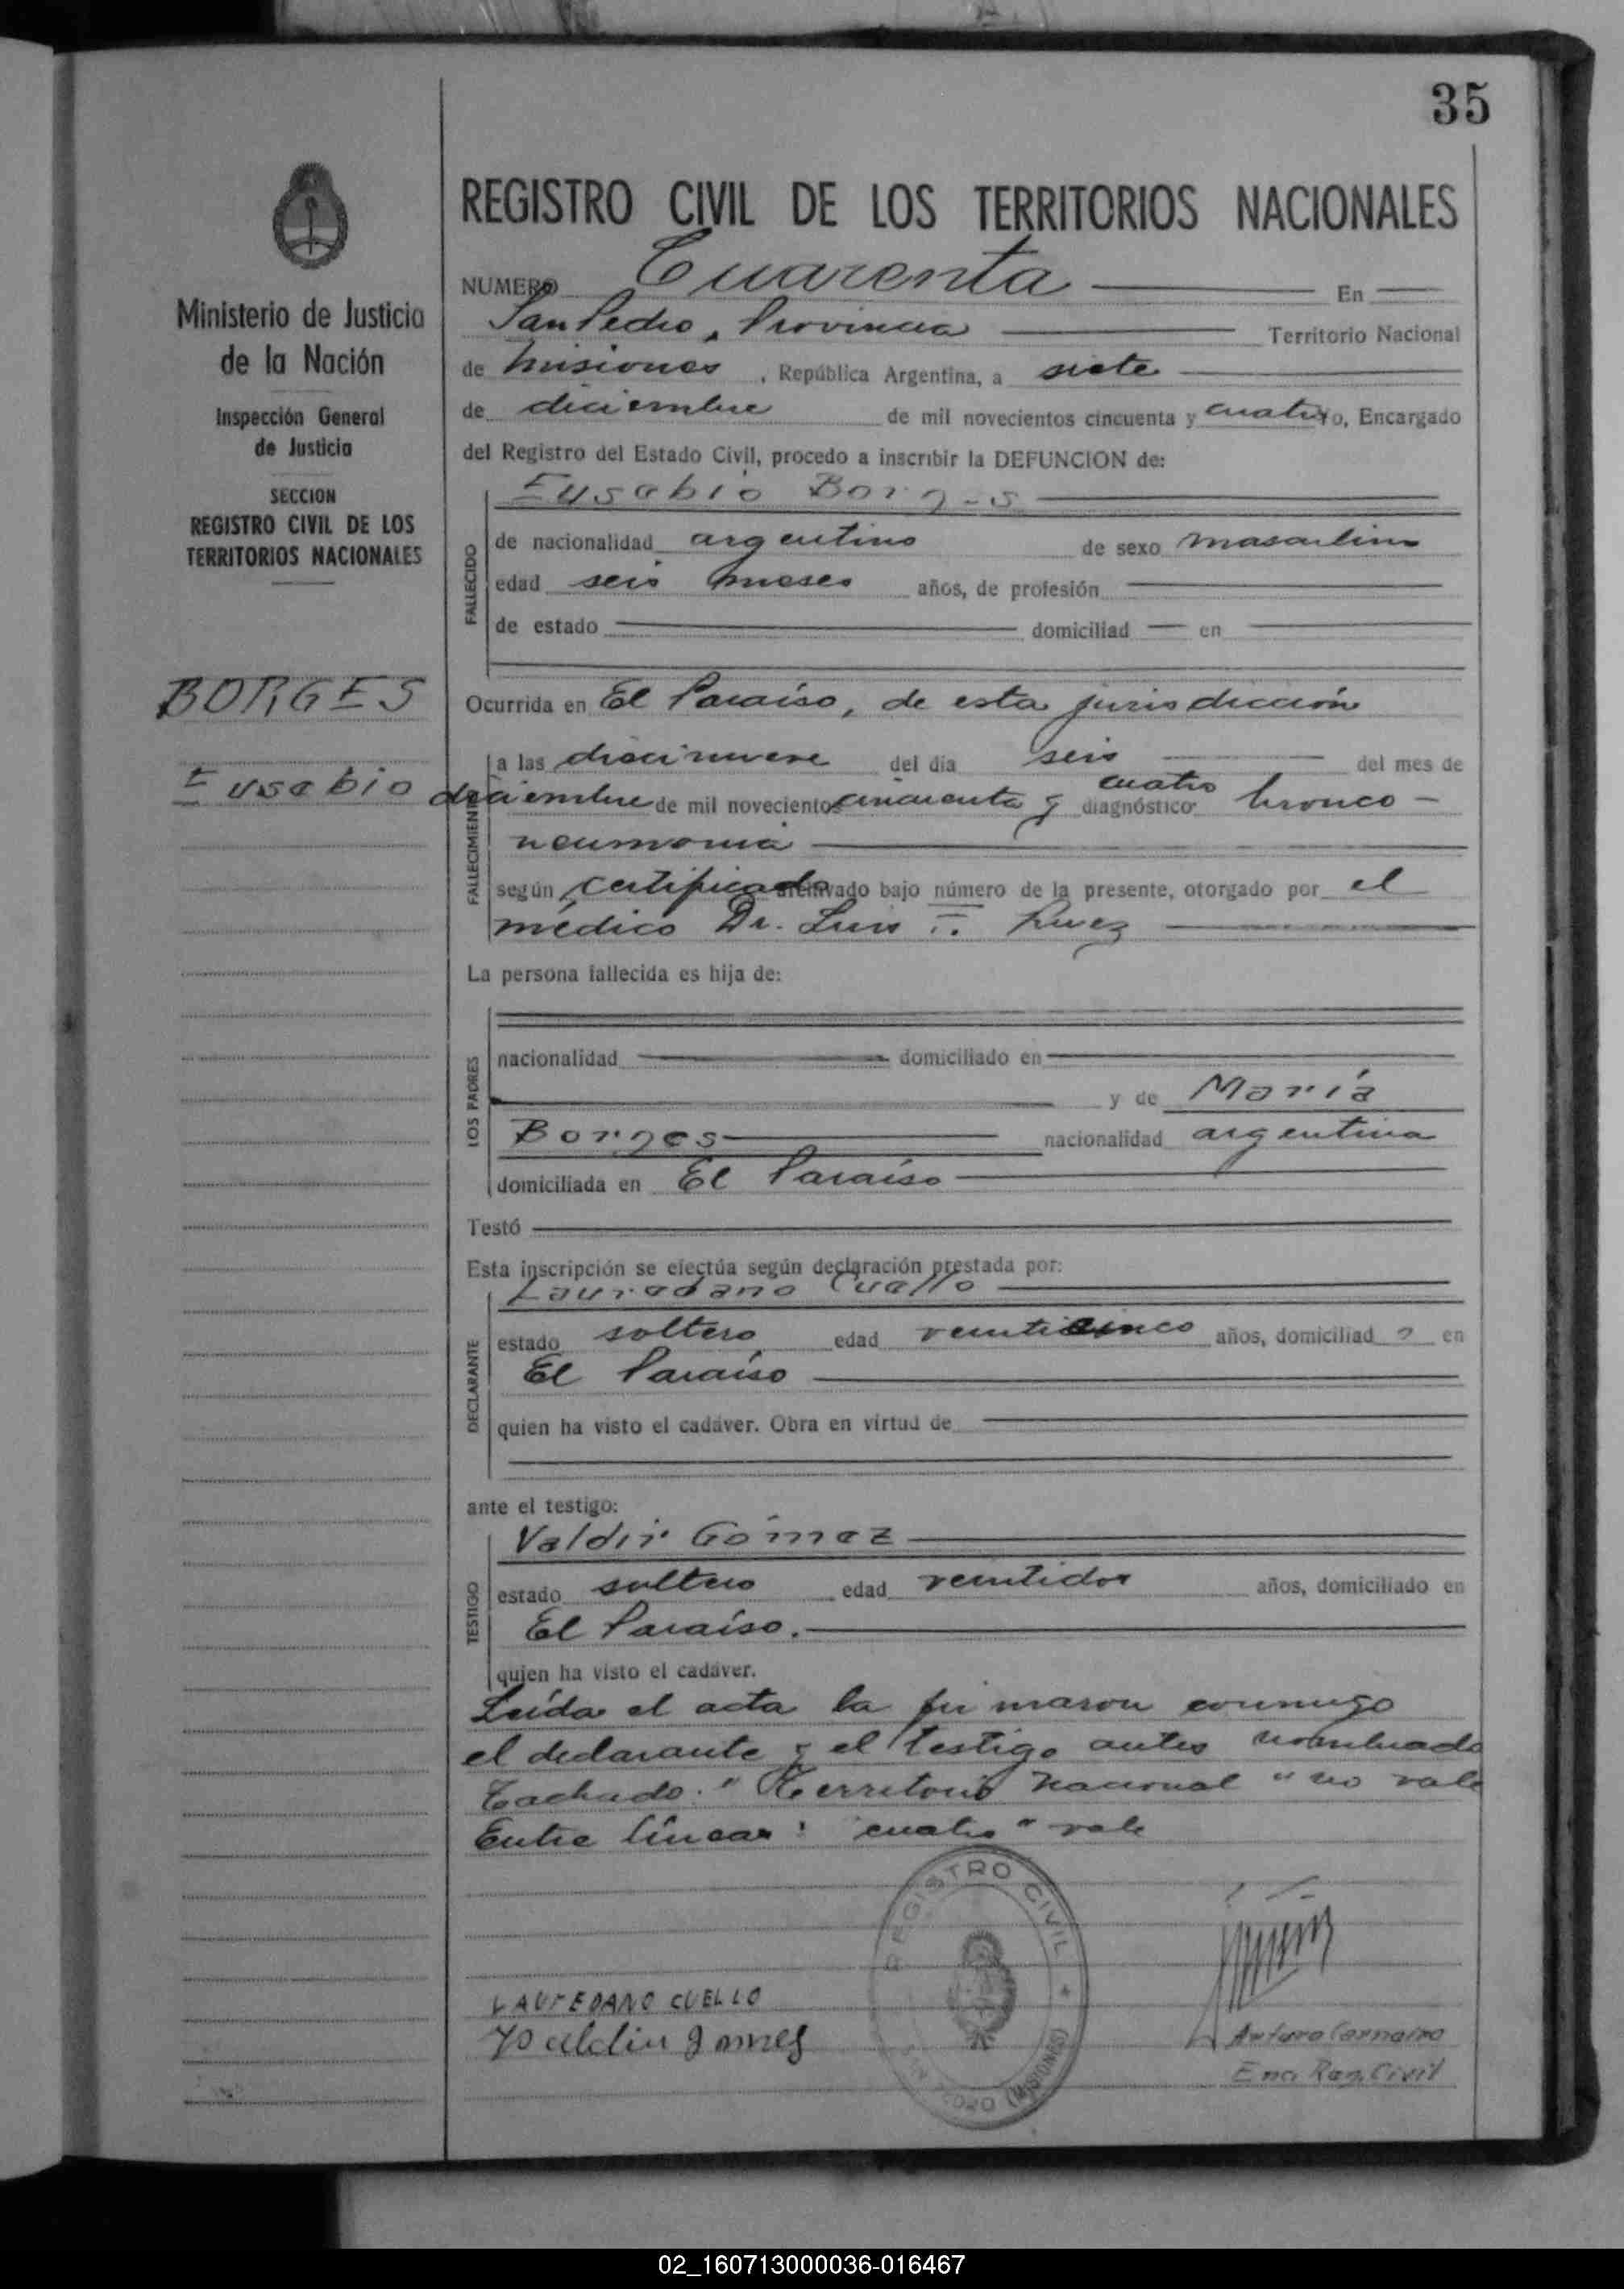 35
REGISTRO CIVIL DE LOS TERRITORIOS NACIONALES
NUMERO Cuarenta En
San Pedro, Provincia Territorio Nacional
de Misiones, República Argentina, a siete
de diciembre de mil novecientos cincuenta y cuatro yo, Encargado
del Registro del Estado Civil, procedo a inscribir la DEFUNCION de:
FALLECIDO
Eusebio Borges
de nacionalidad argentino de sexo masculino
edad seis meses años, de profesión
de estado domiciliad en
Ocurrida en El Paraíso, de esta jurisdicción
FALLECIMIENTO
a las diecinueve del día seis del mes de
diciembre de mil novecientos cincuenta y cuatro diagnóstico: bronco-
neumonia
según certificado archivado bajo número de la presente, otorgado por el
médico Dr. Luis
La persona fallecida es hija de:
LOS PADRES
nacionalidad domiciliado en
y de María
Borges nacionalidad argentina
domiciliada en El Paraíso
Testó
Esta inscripción se efectúa según declaración prestada por:
DECLARANTE
Lauredano Cuello
estado soltero edad veinticinco años, domiciliad o en
El Paraíso
quien ha visto el cadáver. Obra en virtud de
ante el testigo:
TESTIGO
Valdir Gómez
estado soltero edad veintidos años, domiciliado en
El Paraíso.
quien ha visto el cadáver.
Leída el acta la firmaron conmigo
el declarante y el testigo antes nombrado
Tachado: "Territorio Nacional" no vale
Entre líneas: "cuatro" vale
LAUREDANO CUELLO
Valdir Gomes
REGISTRO CIVIL
SAN PEDRO (MISIONES)
Arturo
Enc. Reg. Civil
Ministerio de Justicia
de la Nación
Inspección General
de Justicia
SECCION
REGISTRO CIVIL DE LOS
TERRITORIOS NACIONALES
BORGES
Eusebio
02_160713000036-016467